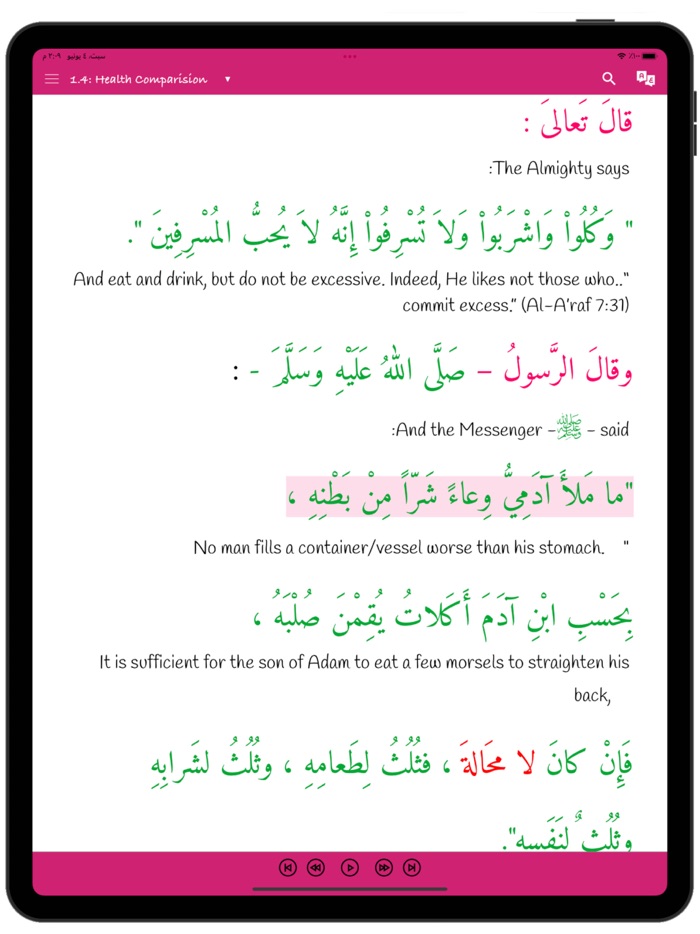 سبت، ٤ يونيو ٢:٠٩ م
٪١٠٠
1.4: Health Comparision
قالَ تَعالىَ :
:The Almighty says
" وَكُلُواْ وَاشْرَبُواْ وَلاَ تُسْرِفُواْ إِنَّهُ لاَ يُحبُّ المُسْرِفِينَ ".
And eat and drink, but do not be excessive. Indeed, He likes not those who.."
commit excess." (Al-A'raf 7:31)
وقالَ الرَّسولُ – صَلَّى اللهُ عَلَيْهِ وَسَلَّمَ - :
:And the Messenger -ﷺ - said
"ما مَلأَ آدَمِيُّ وِعاءً شَرّاً مِنْ بَطْنِهِ ،
No man fills a container/vessel worse than his stomach. "
بِحَسْبِ ابْنِ آدَمَ أَكَلاتُ يُقِمْنَ صُلْبَهُ ،
It is sufficient for the son of Adam to eat a few morsels to straighten his
back,
فَإِنْ كانَ لا مَحَالةَ ، فثُلُثُ لِطَعامِهِ ، وثُلُثُ لشَرابِهِ
وثُلُث ٌ لنَفَسه".